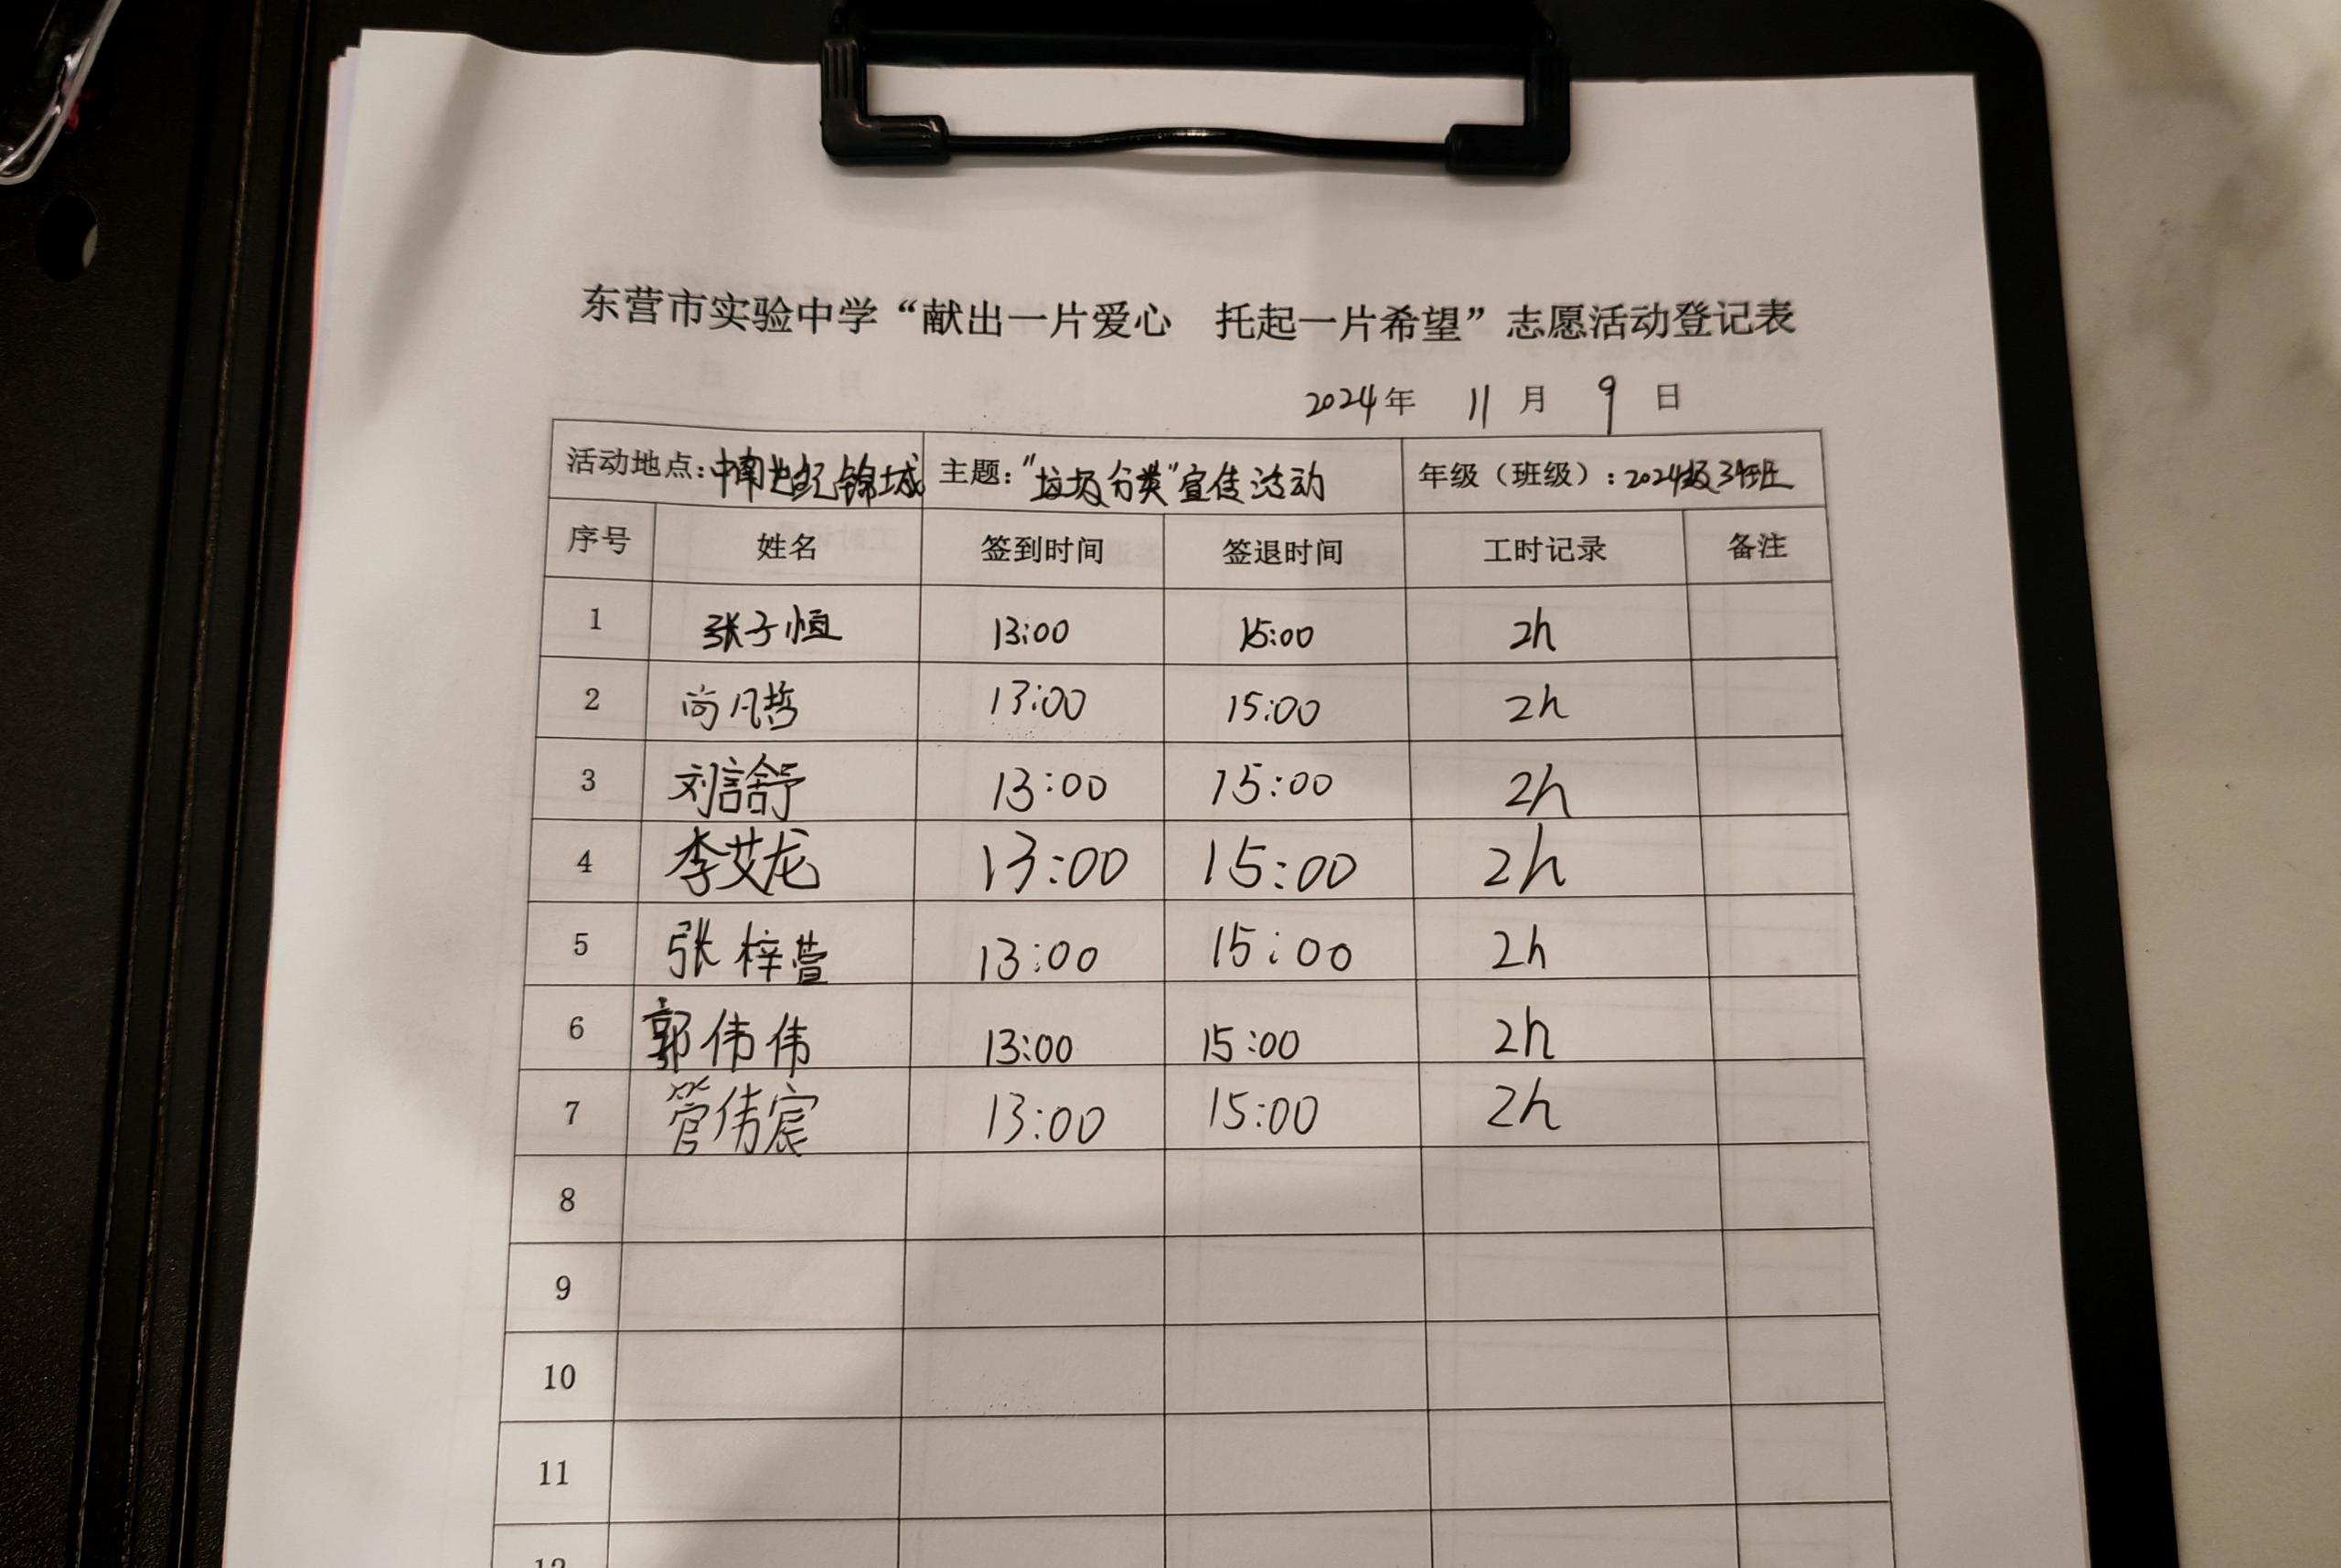 东营市实验中学“献出一片爱心 托起一片希望”志愿活动登记表
2024年 11月 9日
活动地点：中南世纪锦城 主题：“垃圾分类”宣传活动 年级（班级）：2024级34班
序号 姓名 签到时间 签退时间 工时记录 备注
1 张子恒 13:00 15:00 2h
2 尚凡哲 13:00 15:00 2h
3 刘言舒 13:00 15:00 2h
4 李艾龙 13:00 15:00 2h
5 张梓萱 13:00 15:00 2h
6 郭伟伟 13:00 15:00 2h
7 管伟宸 13:00 15:00 2h
8
9
10
11
12